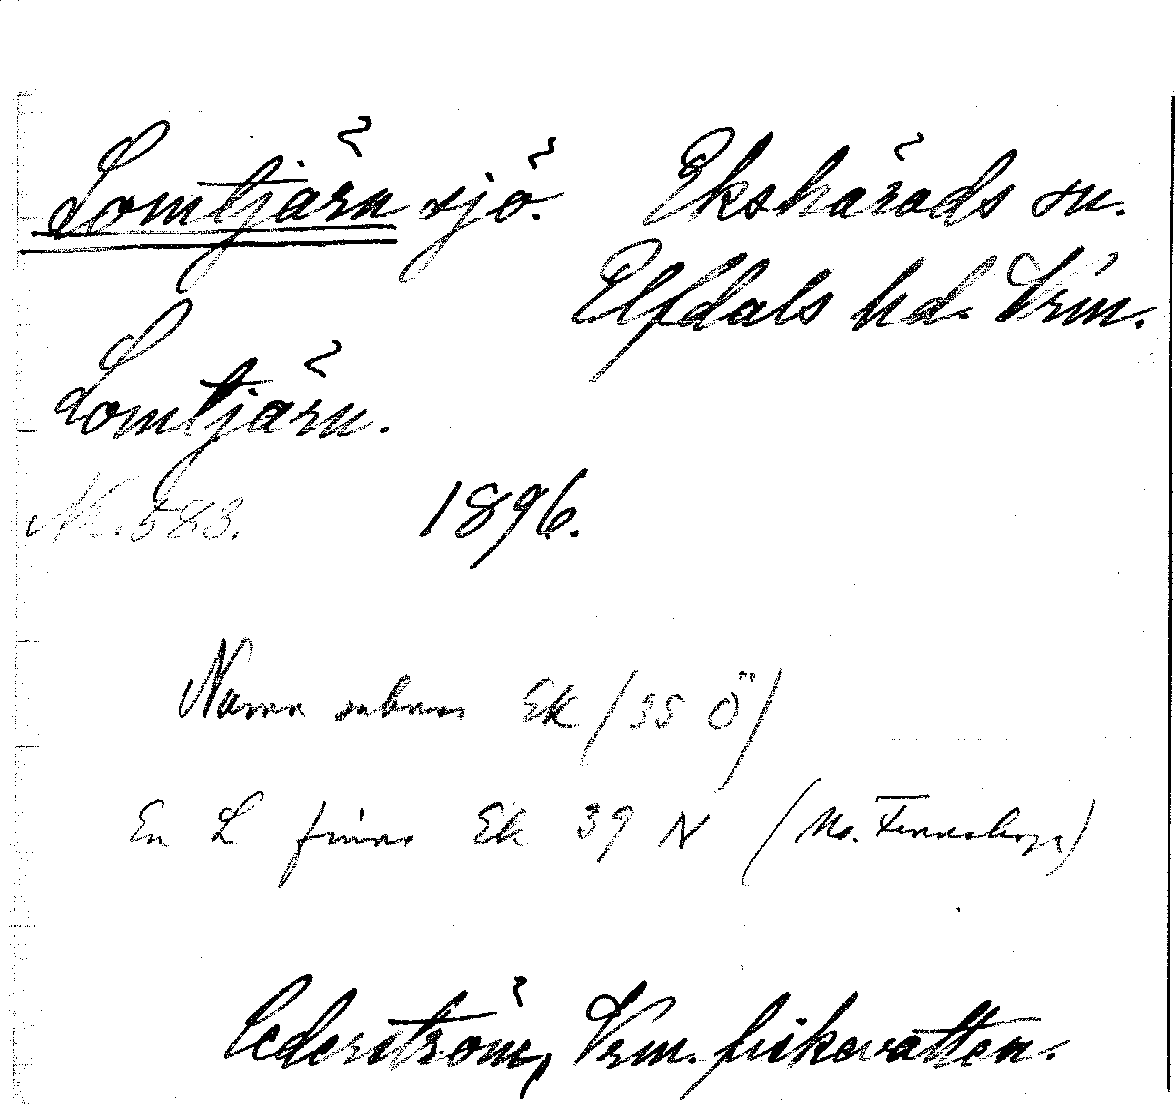 Lomtjärn sjö. Ekshärads sn.
Elfdals hd. Vrm.
Lomtjärn.
Nr. 583. 1896.
Namn saknas Ek (35 Ö)
En L finns Ek 39 N (No. Finnskoga)
Cederström, Vrm. fiskevatten.